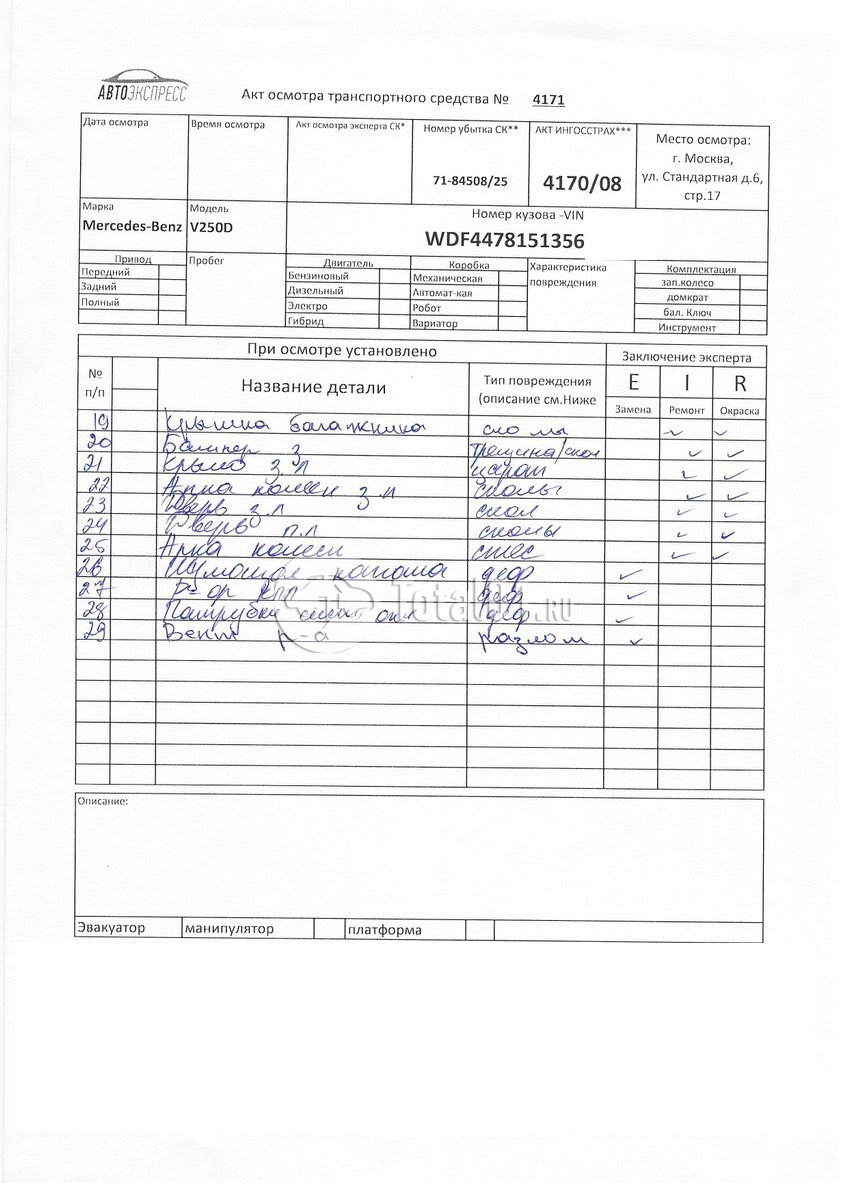 АВТОЭКСПРЕСС
Акт осмотра транспортного средства № 4171
Дата осмотра Время осмотра Акт осмотра эксперта СК* Номер убытка СК** АКТ ИНГОССТРАХ*** Место осмотра:
71-84508/25 4170/08 г. Москва,
ул. Стандартная д.6,
стр.17
Марка Модель Номер кузова -VIN
Mercedes-Benz V250D WDF4478151356
Привод Пробег Двигатель Коробка Характеристика повреждения Комплектация
Передний Бензиновый Механическая зап.колесо
Задний Дизельный Автомат-кая домкрат
Полный Электро Робот бал. Ключ
Гибрид Вариатор Инструмент
При осмотре установлено Заключение эксперта
№ п/п Название детали Тип повреждения (описание см.Ниже E I R
Замена Ремонт Окраска
19 Крышка багажника сколы
20 Бампер з трещина/скол
21 Крыло з л царап
22 Арка колеса з л сколы
23 Дверь з л скол
24 Дверь п.л сколы
25 Арка колеса стес
26 Шумоизол капота деф
27 Р-ор КПП деф
28 Патрубки деф
29 Вент р-а разлом
TotalCar.RU
Описание:
Эвакуатор манипулятор платформа